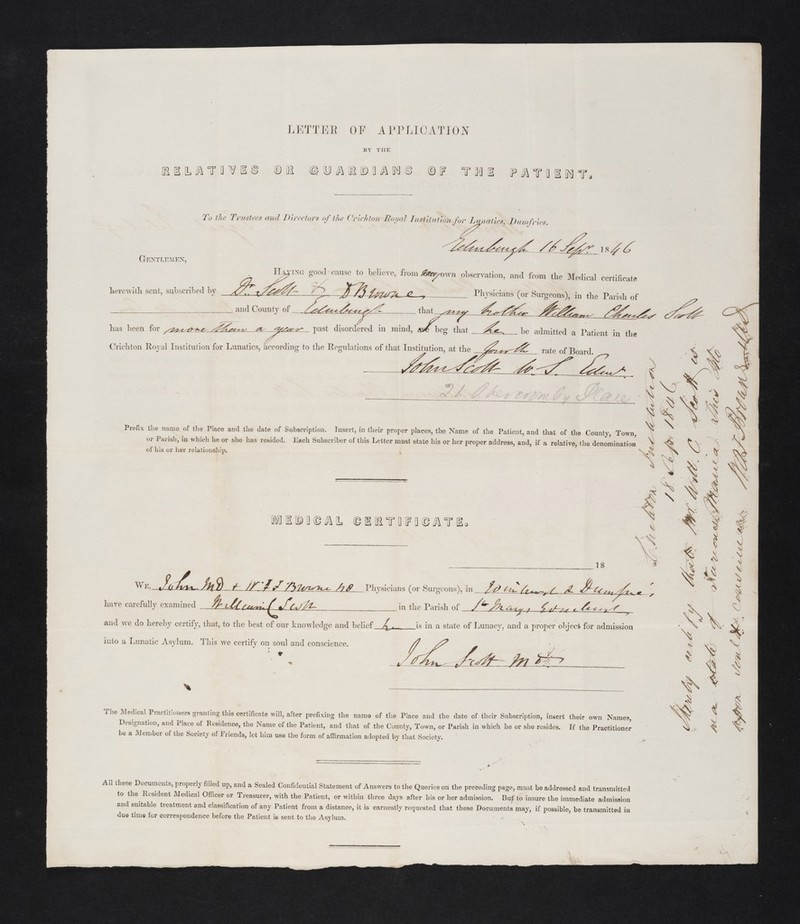 LETTER OF APPLICATION
BY THE
RELATIVES OR GUARDIANS OF THE PATIENT.
To the Trustees and Directors of the Crichton Royal Institution for Lunatics, Dumfries.
Edinburgh 16 Sepr. 1846
GENTLEMEN,
HAVING good cause to believe, from own observation, and from the Medical certificate
herewith sent, subscribed by Dr. Scott & Dr Browne Physicians (or Surgeons), in the Parish of
and County of Edinburgh that my brother William Charles Scott
has been for more than a year past disordered in mind, beg that he be admitted a Patient in the
Crichton Royal Institution for Lunatics, according to the Regulations of that Institution, at the fourth rate of Board.
John Scott W. S. Edinr.
21 Abercromby Place
Prefix the name of the Place and the date of Subscription. Insert, in their proper places, the Name of the Patient, and that of the County, Town,
or Parish, in which he or she has resided. Each Subscriber of this Letter must state his or her proper address, and, if a relative, the denomination
of his or her relationship.
MEDICAL CERTIFICATE.
18
WE, John MD & W. A. F. Browne Physicians (or Surgeons), in Edinburgh & Dumfries,
have carefully examined William C Scott in the Parish of St Marys Edinburgh
and we do hereby certify, that, to the best of our knowledge and belief he is in a state of Lunacy, and a proper object for admission
into a Lunatic Asylum. This we certify on soul and conscience.
John Scott MD
The Medical Practitioners granting this certificate will, after prefixing the name of the Place and the date of their Subscription, insert their own Names,
Designation, and Place of Residence, the Name of the Patient, and that of the County, Town, or Parish in which he or she resides. If the Practitioner
be a Member of the Society of Friends, let him use the form of affirmation adopted by that Society.
All these Documents, properly filled up, and a Sealed Confidential Statement of Answers to the Queries on the preceding page, must be addressed and transmitted
to the Resident Medical Officer or Treasurer, with the Patient, or within three days after his or her admission. But to insure the immediate admission
and suitable treatment and classification of any Patient from a distance, it is earnestly requested that these Documents may, if possible, be transmitted in
due time for correspondence before the Patient is sent to the Asylum.
Crichton Institution
18 Sep 1846
I hereby certify that Mr Will. C. Scott is
in a state of Mania. This I do
upon soul & conscience